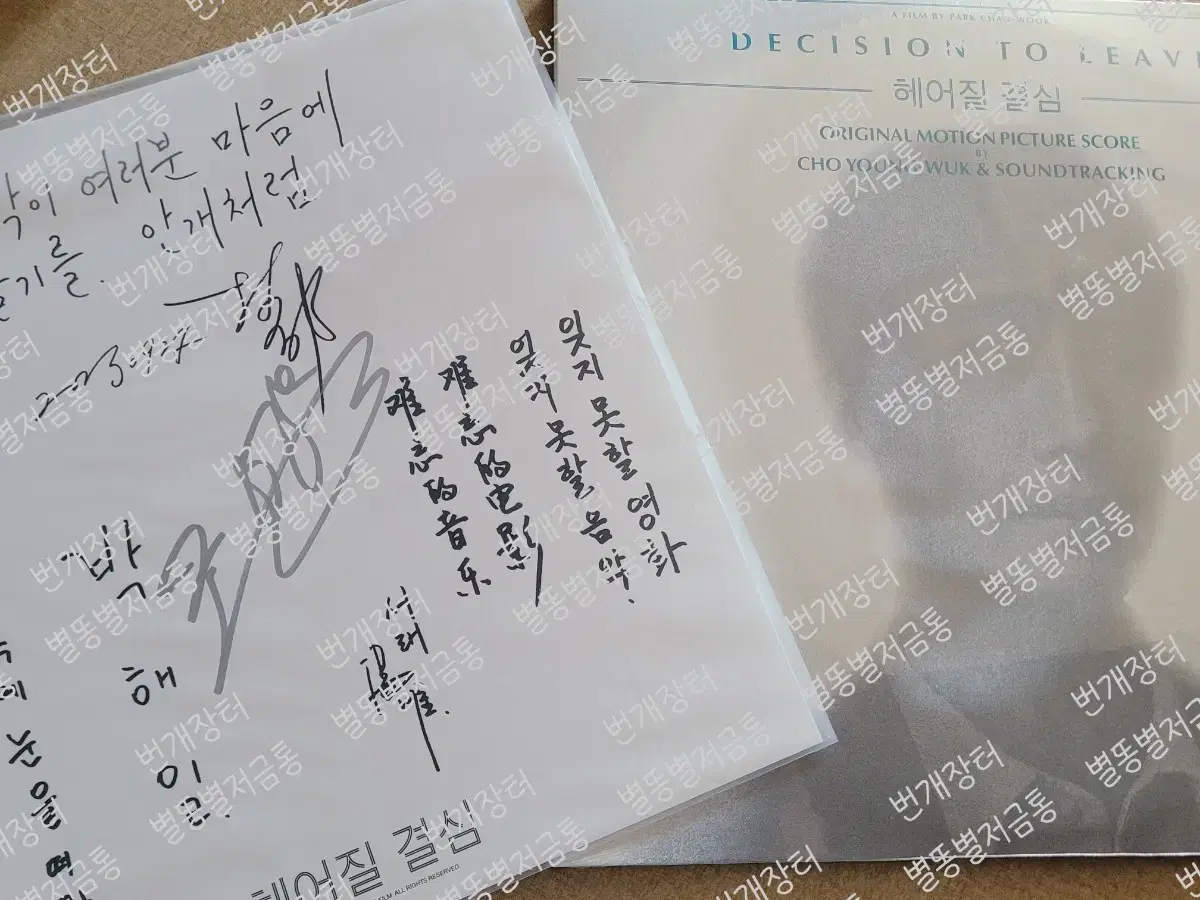 여러분 마음에
안개처럼
기를.
잊지 못할 영화
잊지 못할 음악.
难忘的电影
难忘的音乐
서래
박
해
일
눈
을
헤어질 결심
FILM. ALL RIGHTS RESERVED.
A FILM BY PARK CHAN-WOOK
DECISION TO LEAVE
헤어질 결심
ORIGINAL MOTION PICTURE SCORE
BY
CHO YOUNG-WUK & SOUNDTRACKING
번개장터
별똥별저금통